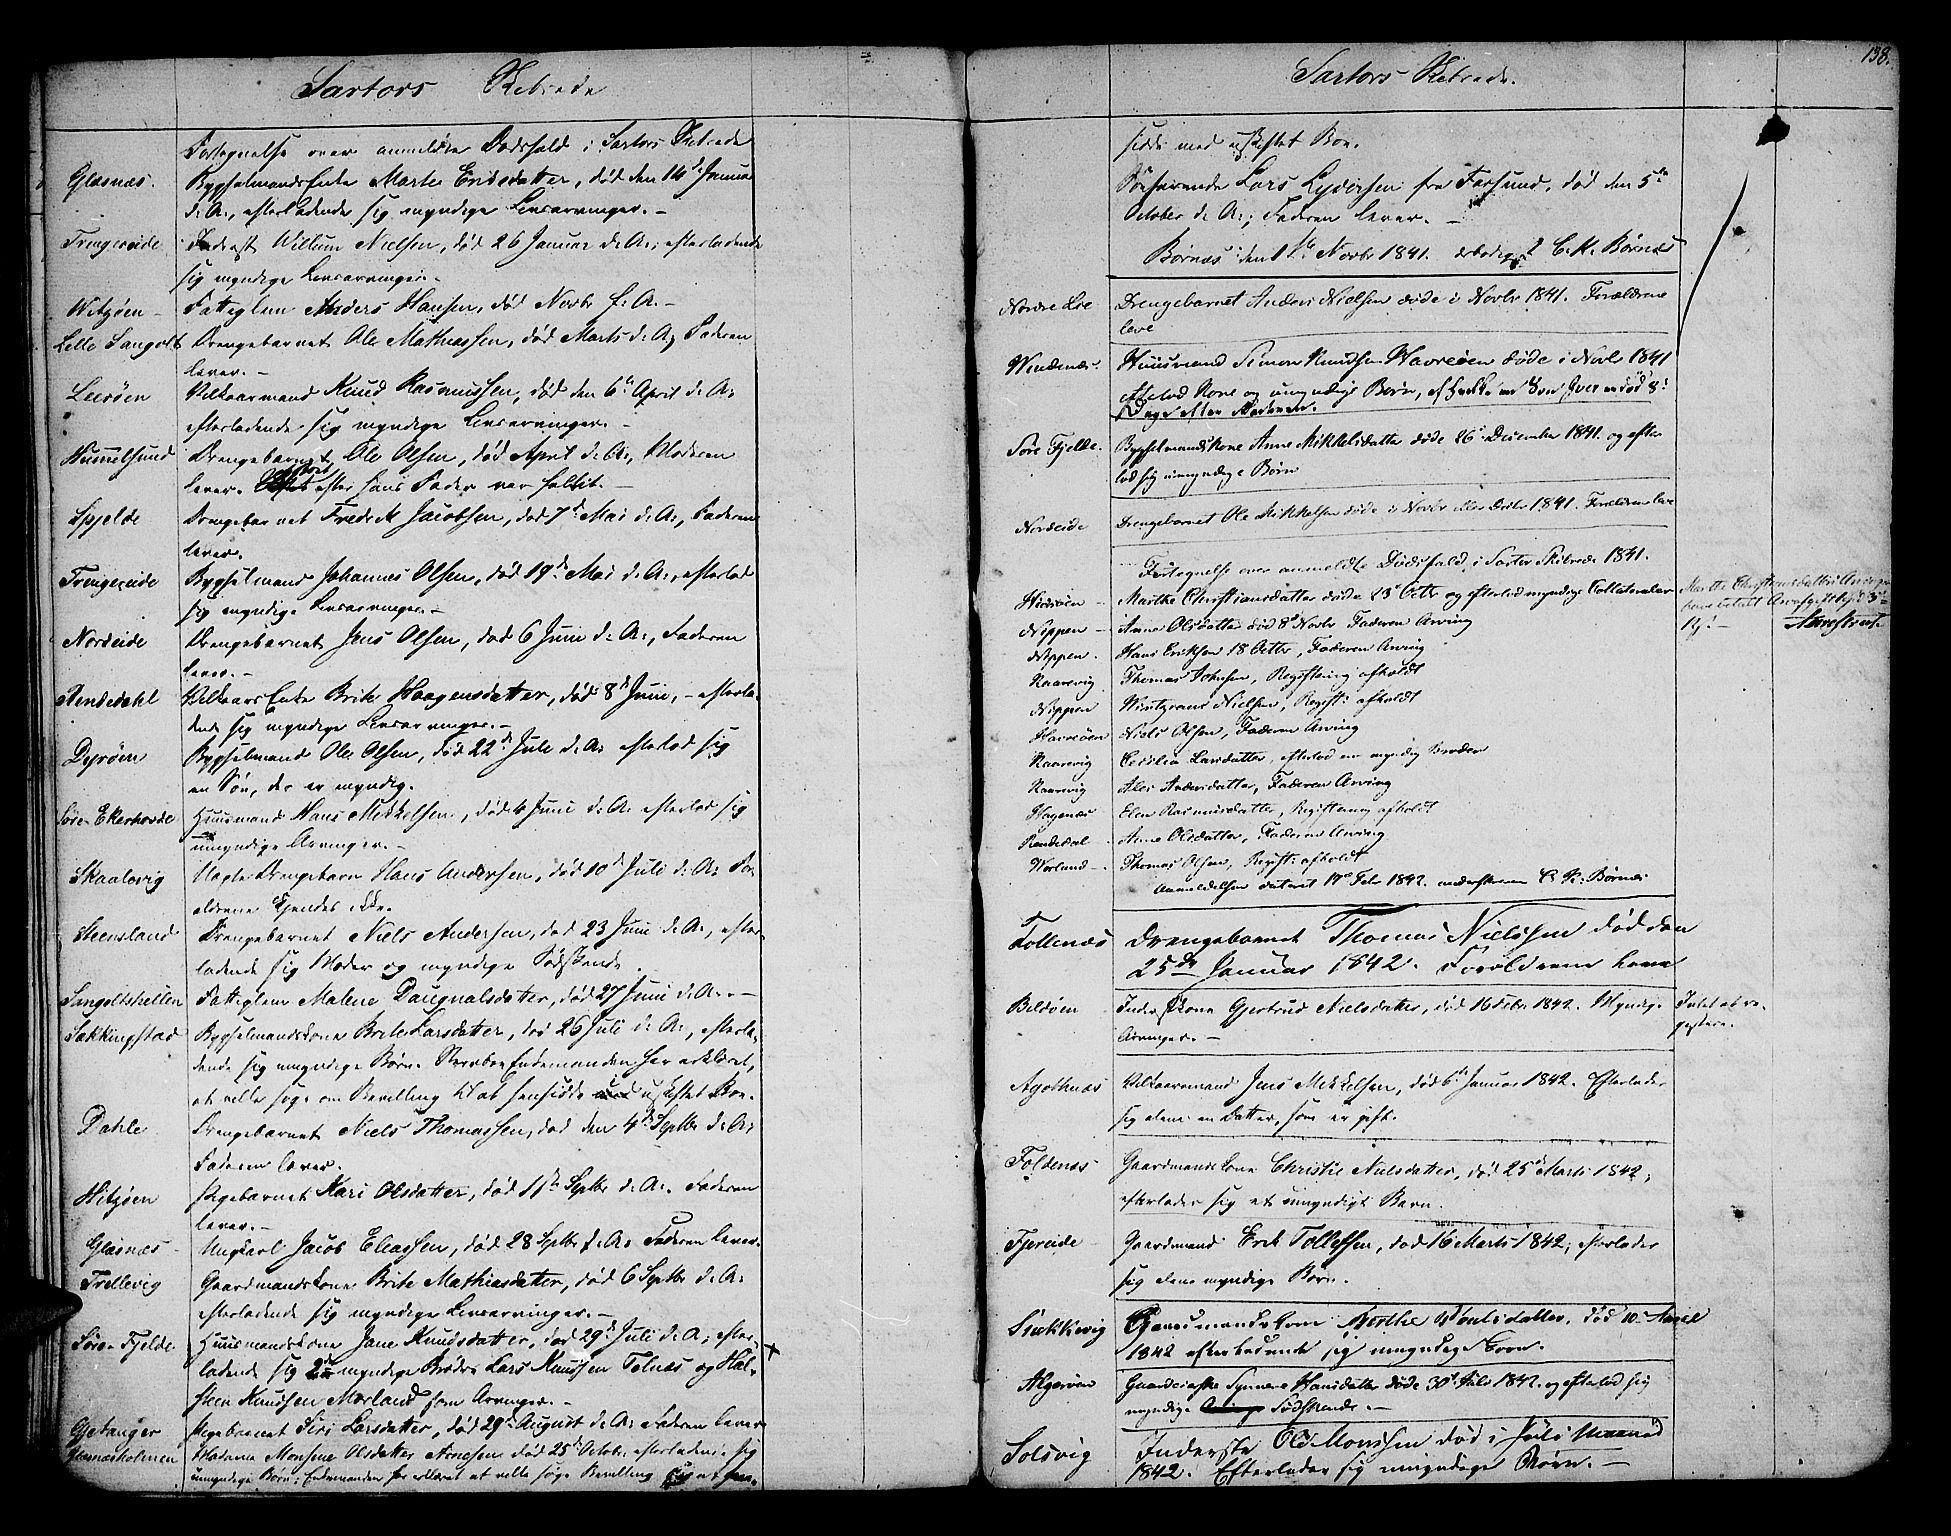 Sartors Skibrede
Fortegnelse over anmeldte Dødsfald i Sartors Skibrede
Glæsnæs. Bygselmands Enke Marte Ericsdatter, død den 14de Januar
d: A:, efterladende sig myndige Livsarvinger. –
Trengereide Inderst Willum Nielsen, død 26 Januar d: A:, efterladende
sig myndige Livsarvinger. –
Witzøen – Fattiglem Anders Hansen, død Novbr f: A: –
Lille Sangolt Drengebarnet Ole Mathiassen, død Marts d: A:, Faderen
lever. –
Leerøen Vilkaarmand Knud Rasmussen, død den 6te April d: A:
efterladende sig myndige Livsarvinger. –
Hummelsund Drengebarnet Ole Olsen, død April d: A:, Moderen
lever. efter hans Fader var holdt. –
Spjelde Drengebarnet Fredrik Jacobsen, død 7de Mai d: A:, Faderen
lever.
Trengereide Bygselmand Johannes Olsen, død 19de Mai d: A:, efterlod
sig myndige Livsarvinger. –
Nordeide Drengebarnet Jens Olsen, død 6 Juni d: A:, Faderen
lever. –
Rendedahl Vilkaars Enke Brite Haagensdatter, død 8de Juni, – efterla-
dende sig myndige Livsarvinger. –
Dyrøen Bygselmand Ole Olsen, død 22de Juli d: A: efterlod sig
en Søn, der er myndig.
Søre Ekerhovde Huusmand Hans Mikkelsen, død 4 Juni d: A: efterlod sig
umyndige Arvinger. –
Skaalevig Uægte Drengebarn Hans Andersen, død 10de Juli d: A: For-
ældrene kjendes ikke.
Steensland Drengebarnet Niels Andersen, død 23 Juni d: A:, efter-
ladende sig Moder og myndige Sødskende.
Sangoltshellen Fattiglem Malene Daugnalsdatter, død 27 Juni d: A: –
Sækkingstad Bygselmandskone Brite Larsdatter, død 26 Juli d: A:, efterla-
dende sig umyndige Børn. Enkemanden har erklæret,
at ville søge om Bevilling til at hensidde i uskiftet Boe.
Dahle Drengebarnet Niels Thomassen, død den 4de Septbr d: A:
Faderen lever.
Hitzøen Pigebarnet Kari Olsdatter, død 11te Septbr d: A:. Faderen
lever. –
Glæsnæs – Ungkarl Jacob Eleassen, død 28 Septbr f: A: Faderen lever.
Trellevig Gaardmandskone Brite Mathiasdatter, død 6 Septbr d: A:
efterladende sig myndige Livsarvinger. –
Søre Fjelde Huusmandskone Jane Knudsdatter, død 29de Juli d: A:, efter-
ladende sig 2de myndige Brødre Lars Knudsen Telnæs og Hal-
steen Knudsen Morland som Arvinger. –
Gjetanger Pigebarnet Siri Larsdatter, død 29de August d: A: Faderen lever
Glæsnæsholmen Madame Monsine Olsdatter Arnesen død 25de Octbr. efterladende sig
umyndige Børn; Enkemanden har erklæret at ville søge Bevilling
138.
Sartors Skibrede.
sidde med uskiftet Boe.
Søefarende Lars Lydersen fra Farsund, død den 5te
October d: A:; Faderen lever. –
Børnæs den 1ste Novbr 1841. ærbødigst C. K. Børnæs
Nordre Lie Drengebarnet Anders Nielsen døde i Novbr 1841. Forældrene
leve
Windenæs – Huusmand Simon Knudsen Havreøen døde i Novbr 1841
efterlod Kone og umyndige Børn, af hvilke en Søn Iver er død 8
Dage efter Faderen.
Søre Fjelde. Bygselmandskone Anne Mikkelsdatter døde 26 December 1841. og efter
lod sig umyndige Børn
Nordeide Drengebarnet Ole Mikkelsen døde i Novbr eller Decbr 1841. Forældrene leve
Fortegnelse over anmeldte Dødsfald i Sartor Skibrede 1841.
Hidsøen – Marthe Christiansdatter døde 23 Octbr og efterlod myndige Collateralar
Marthe Christiansdatters Arvinger
have betalt Arveafgift
Nippen – Anne Olsdatter død 8de Novbr Faderen Arving
Nippen – Hans Eriksen 18 Octbr, Faderen Arving
Kaarevig Thomas Johnsen, Registrering afholdt
Nippen Wintzents Nielsen, Registr: afholdt
Havreøen Niels Olsen, Faderen Arving
Kaarevig Cecilia Larsdatter, efterlod en myndig Broder
Kaarevig Ales Andersdatter, Faderen Arving
Hagenæs Elen Rasmusdatter, Registrering afholdt
Rendedal – Anne Olsdatter, Faderen Arving
Morland – Thomas Olsen, Registr: afholdt
Anmeldelsen dateret 17de Febr 1842. underskreven C. K. Børnæs
Follenæs Drengebarnet Thomas Nielssen død den
25de Januar 1842. Forældrene leve
Bildøen Inderstkone Gjertrud Nielsdatter, død 16 Febr 1842. Myndige
Arvinger. –
Intet at re-
gistrere.
Agothnæs Vilkaarsmand Jens Mikkelsen, død 6te Januar 1842. Efterlader
sig alene en Datter, som er gift.
Foldenæs Gaardmandskone Christie Nielsdatter, død 25de Marts 1842,
efterlader sig et umyndigt Barn.
Fjereide – Gaardmand Erik Tollefsen, død 16 Marts 1842, efterlader
sig alene myndige Børn.
Snekkevig Gaardmandskone Berthe Poulsdatter, død 10 April
1842 efterladende sig umyndige Børn.
Algerøen Gaardpige Synneve Hansdatter døde 30te Juli 1842. og efterlod sig
myndige Sødskende. –
Solsvig Inderste Ole Monssen død i Juli Maaned
1842. Efterlader sig umyndige Børn. –